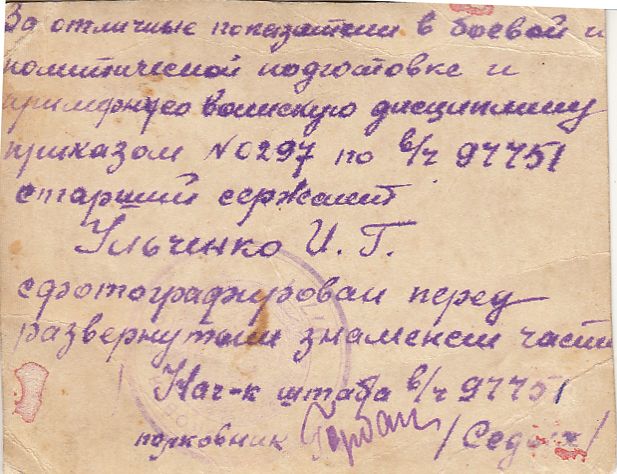 За отличные показатели в боевой и
политической подготовке и
примерную воинскую дисциплину
приказом № 0297 по в/ч 97751
старший сержант
Ульченко И. Г.
сфотографирован перед
развернутым знаменем части
Нач-к штаба в/ч 97751
полковник / /